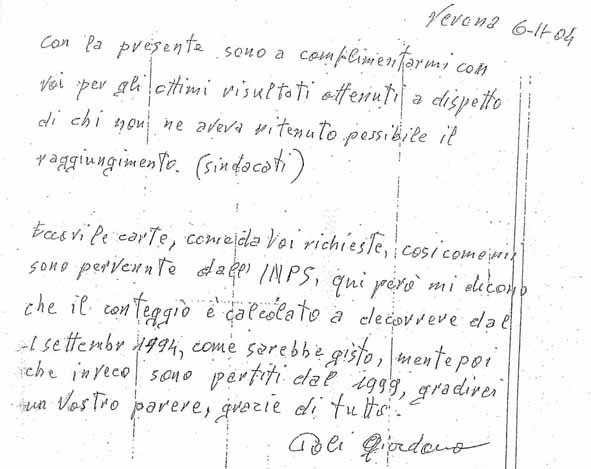 Verona 6-11-04
Con la presente sono a complimentarmi con
voi per gli ottimi risultati ottenuti a dispetto
di chi non ne aveva ritenuto possibile il
raggiungimento. (sindacati)
Eccovi le carte, come da Voi richieste, così come mi
sono pervenute dall' INPS, qui però mi dicono
che il conteggio è calcolato a decorrere dal
1 settembr 1994, come sarebbe gisto, mente poi
che invece sono partiti dal 1999, gradirei
un Vostro parere, grazie di tutto.
Giordano